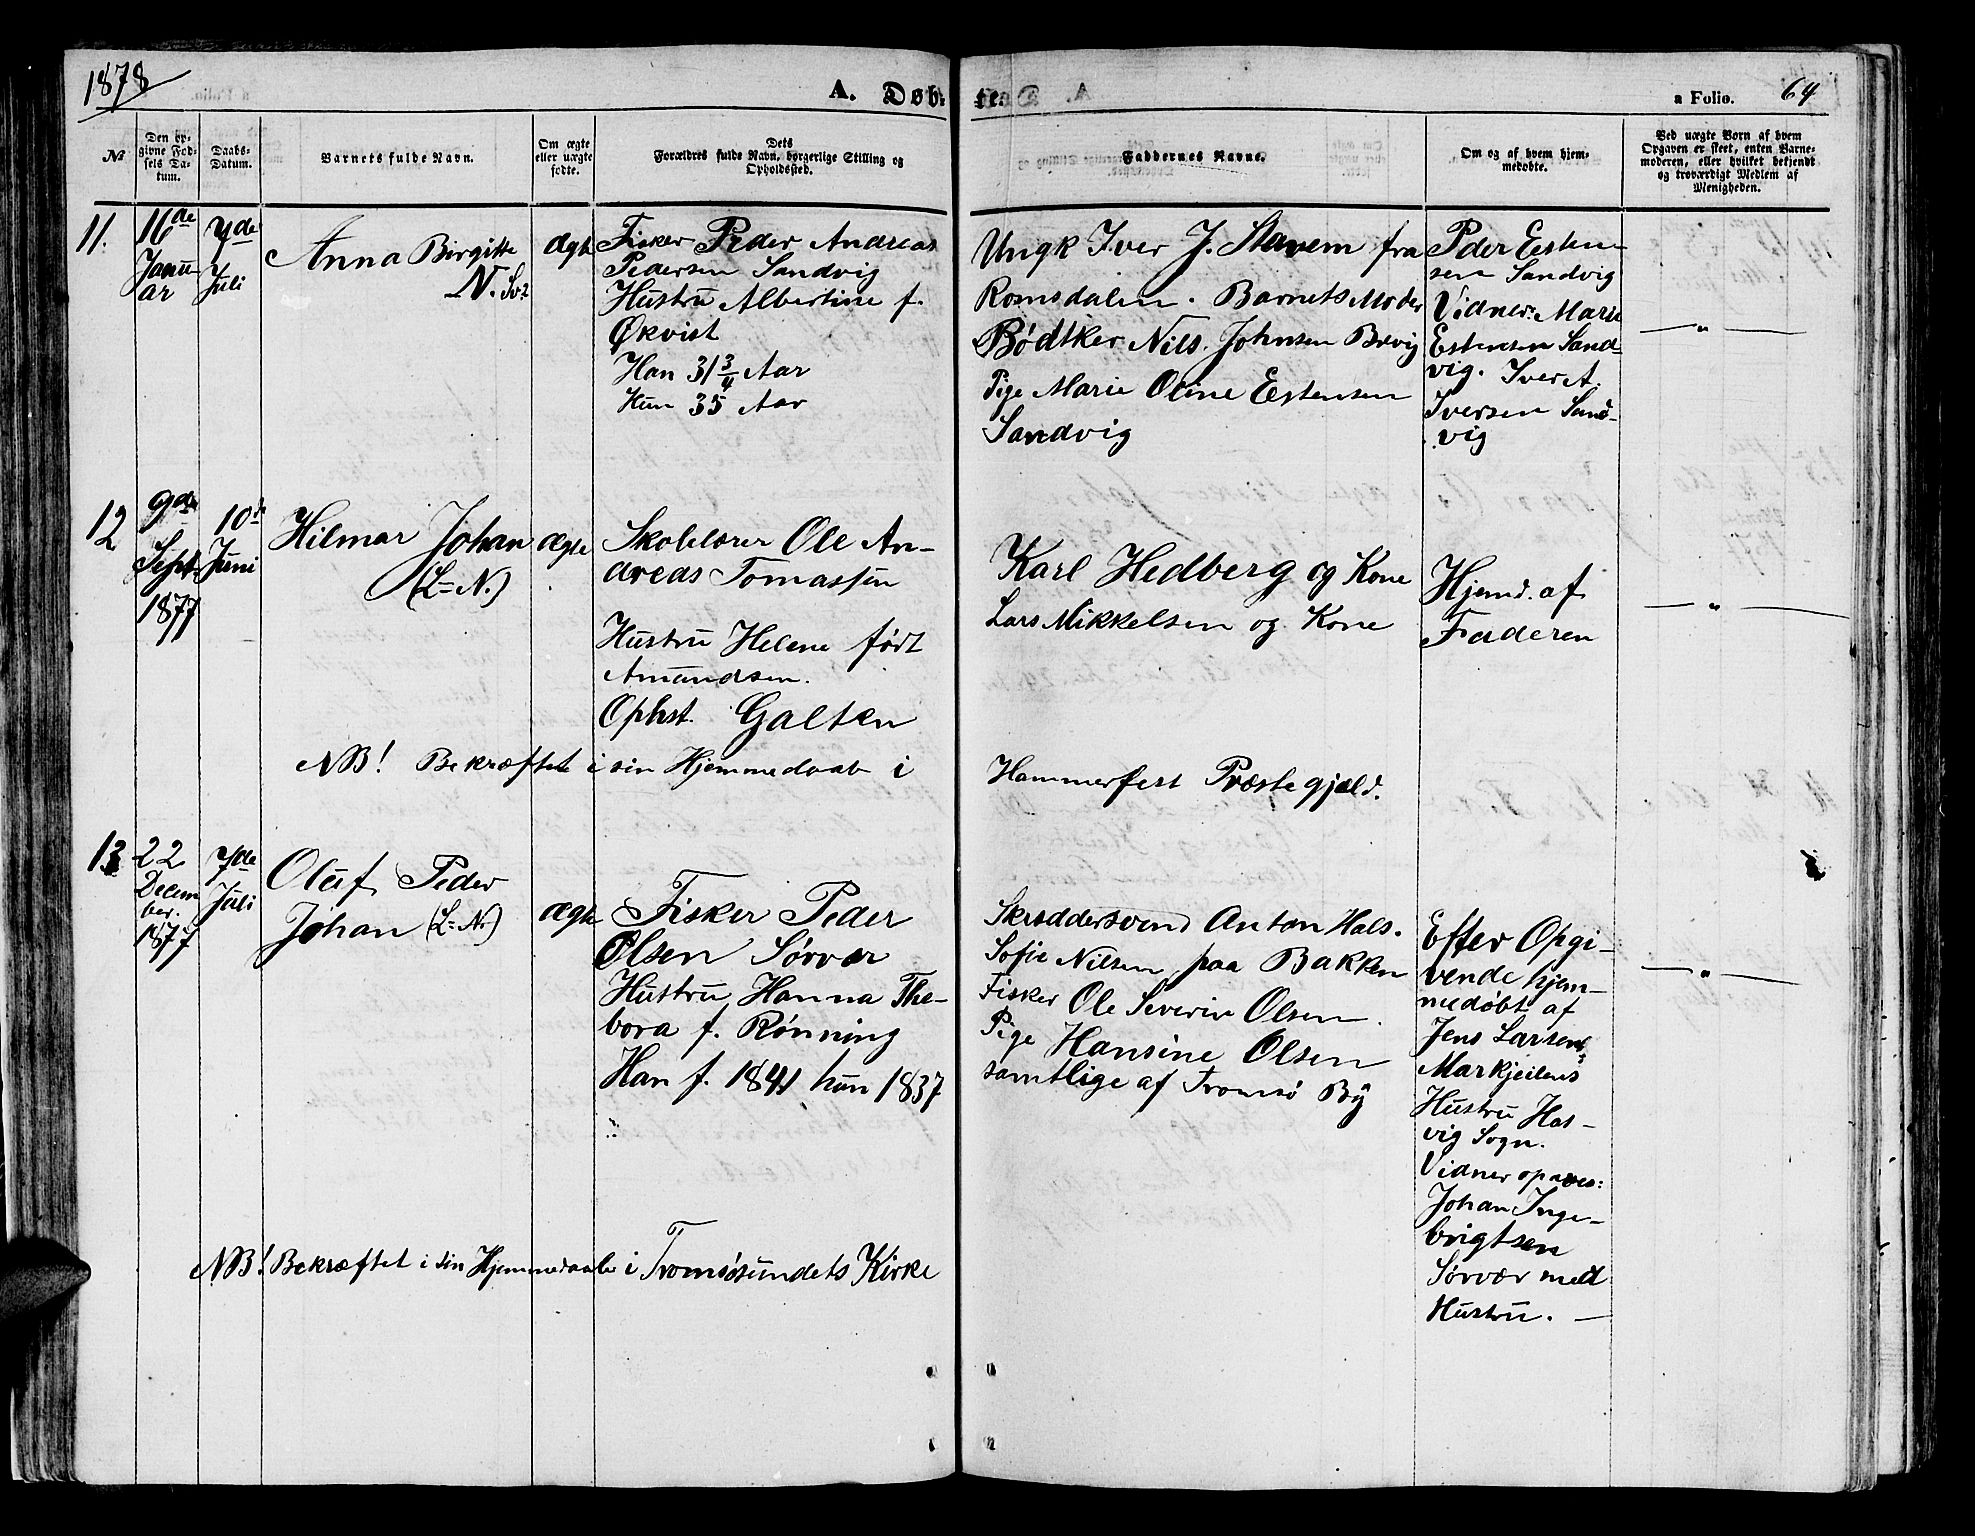 1878
A. Døb-
te.
a Folio. 64
№
Den op-
givne Fød-
sels Da-
tum.
Daabs-
Datum.
Barnets fulde Navn.
Om ægte
eller uægte
fødte.
Dets
Forældres fulde Navn, borgerlige Stilling og
Opholdssted.
Faddernes Navne.
Om og af hvem hjem-
medøbte.
Ved uægte Børn af hvem
Opgaven er skeet, enten Barne-
moderen, eller hvilket bekjendt
og troværdigt Medlem af
Menigheden.
11.
16de
Janu-
ar
7de
Juli
Anna Birgitte
N.
ægte
Fisker Peder Andreas
Pedersen Sandvig
Hustru Albertine f.
Økvist
Han 31 3/4 Aar
Hun 35 Aar
Ungk Iver J. Stavem fra
Romsdalen. Barnets Moder
Bødtker Nils Johnsen Brevig
Pige Marie Oline Eestensen
Sandvig
Peder Eesten-
sen Sandvig
Vidner: Marie
Estensen Sand-
vig. Iver A.
Iversen Sand-
vig
— " —
12
9de
Septr
1877
10de
Juni
Hilmar Johan
(L-N.)
ægte
Skolelærer Ole An-
dreas Tomassen
Hustru Helene født
Amundsen.
Ophst. Galten
Karl Hedberg og Kone
Lars Mikkelsen og Kone
Hjemd. af
Faderen
— " —
NB! Bekræftet i sin Hjemmedaab i
Hammerfest Præstegjæld.
13
22
Decem-
ber.
1877
7de
Juli
Oluf Peder
Johan (L-N.)
ægte
Fisker Peder
Olsen Sørvær
Hustru Hanna The-
bora f. Rønning
Han f. 1841 hun 1837
Skræddersvend Anton Hals.
Sofie Nilsen paa Bakken
Fisker Ole Severin Olsen.
Pige Hansine Olsen
samtlige af Tromsø By
Efter Opgi-
vende hjem-
medøbt af
Jens Larsen
Markjeilens
Hustru Has-
vig Sogn.
Vidner opgives:
Johan Inge-
brigtsen
Sørvær med
Hustru. —
— " —
NB! Bekræftet i sin Hjemmedaab i Tromsøsundets Kirke